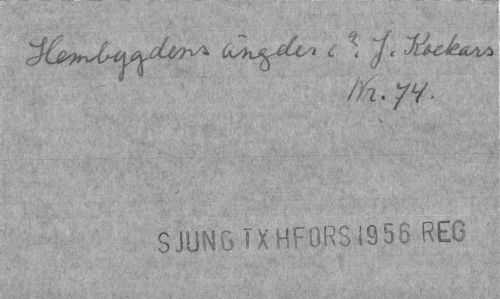 Hembygdens ängder c? J. Kockars
Nr. 74.
SJUNG TX HFORS 1956 REG